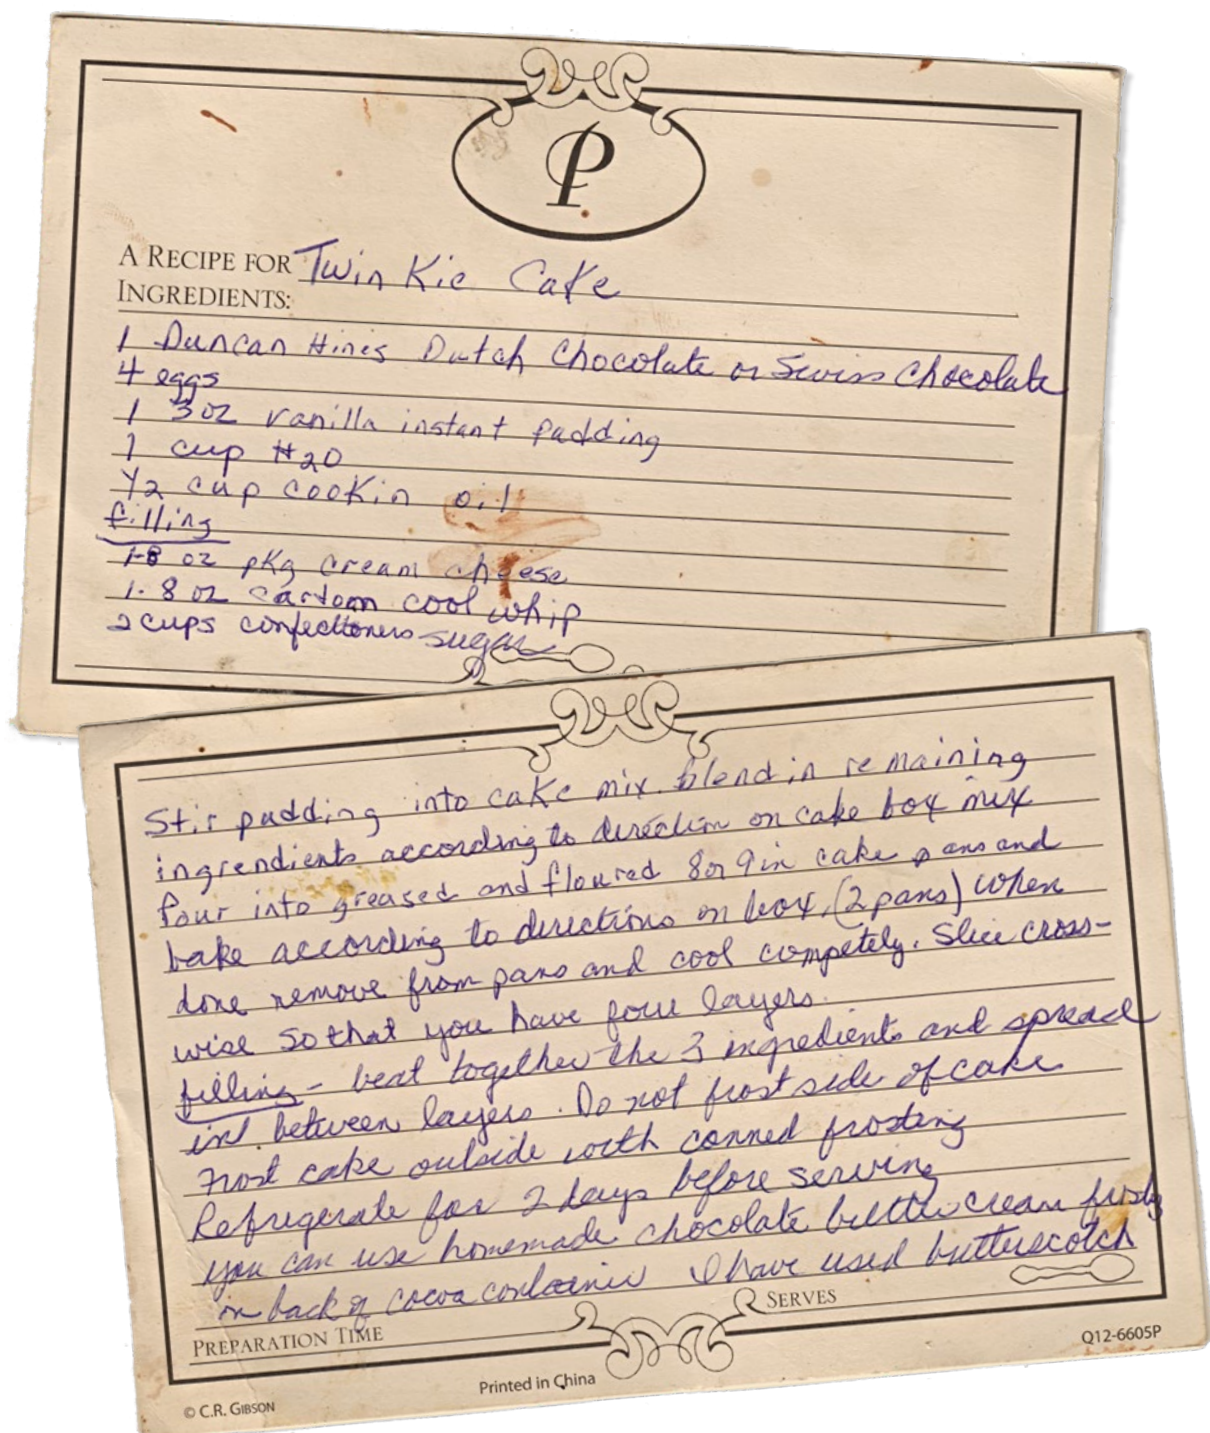 P
A RECIPE FOR Twin Kie Cake
INGREDIENTS:
1 Duncan Hines Dutch Chocolate or Swiss Chocolate
4 eggs
1 3oz vanilla instant padding
1 cup H20
1/2 cup cookin oil
filling
1-8 oz pkg cream cheese
1-8 oz cartoon cool whip
2 cups confecttoners sugar
Stir padding into cake mix. blend in remaining
ingrendients according to direction on cake box mix
Pour into greased and floured 8 or 9 in cake pans and
bake according to directions on box, (2 pans) when
done remove from pans and cool competely. Slice cross-
wise so that you have four layers.
filling - beat together the 3 ingredients and spread
in between layers. Do not frost side of cake
Frost cake outside with canned frosting
Refrigerate for 2 days before serving
you can use homemade chocolate butter cream frosting
on back of cocoa container I have used butterscotch
PREPARATION TIME
SERVES
Q12-6605P
Printed in China
© C.R. GIBSON